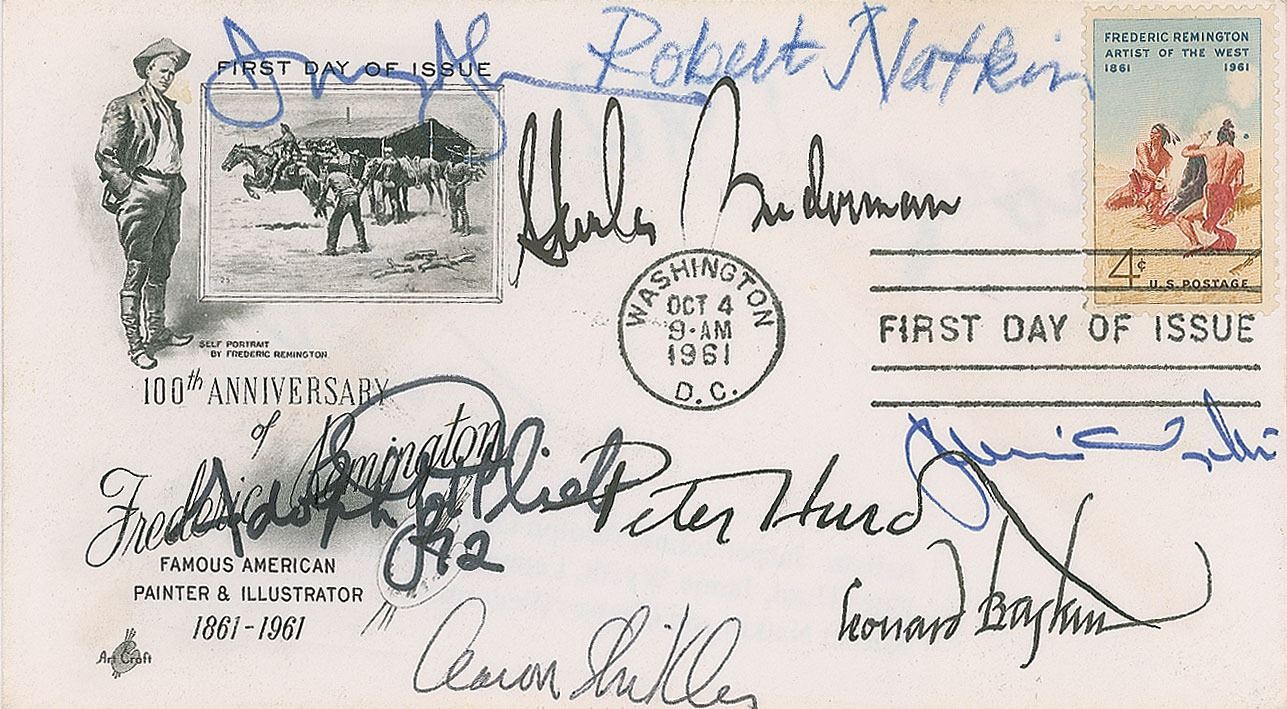 FIRST DAY OF ISSUE
Robert Natkin
FREDERIC REMINGTON
ARTIST OF THE WEST
1861 1961
4¢
U.S. POSTAGE
WASHINGTON
OCT 4
9-AM
1961
D.C.
FIRST DAY OF ISSUE
SELF PORTRAIT
BY FREDERIC REMINGTON
100th ANNIVERSARY
of
Frederic Remington
Adolph Gottlieb
72
Peter Hurd
FAMOUS AMERICAN
PAINTER & ILLUSTRATOR
1861-1961
Leonard Baskin
Aaron Shikler
Art Craft